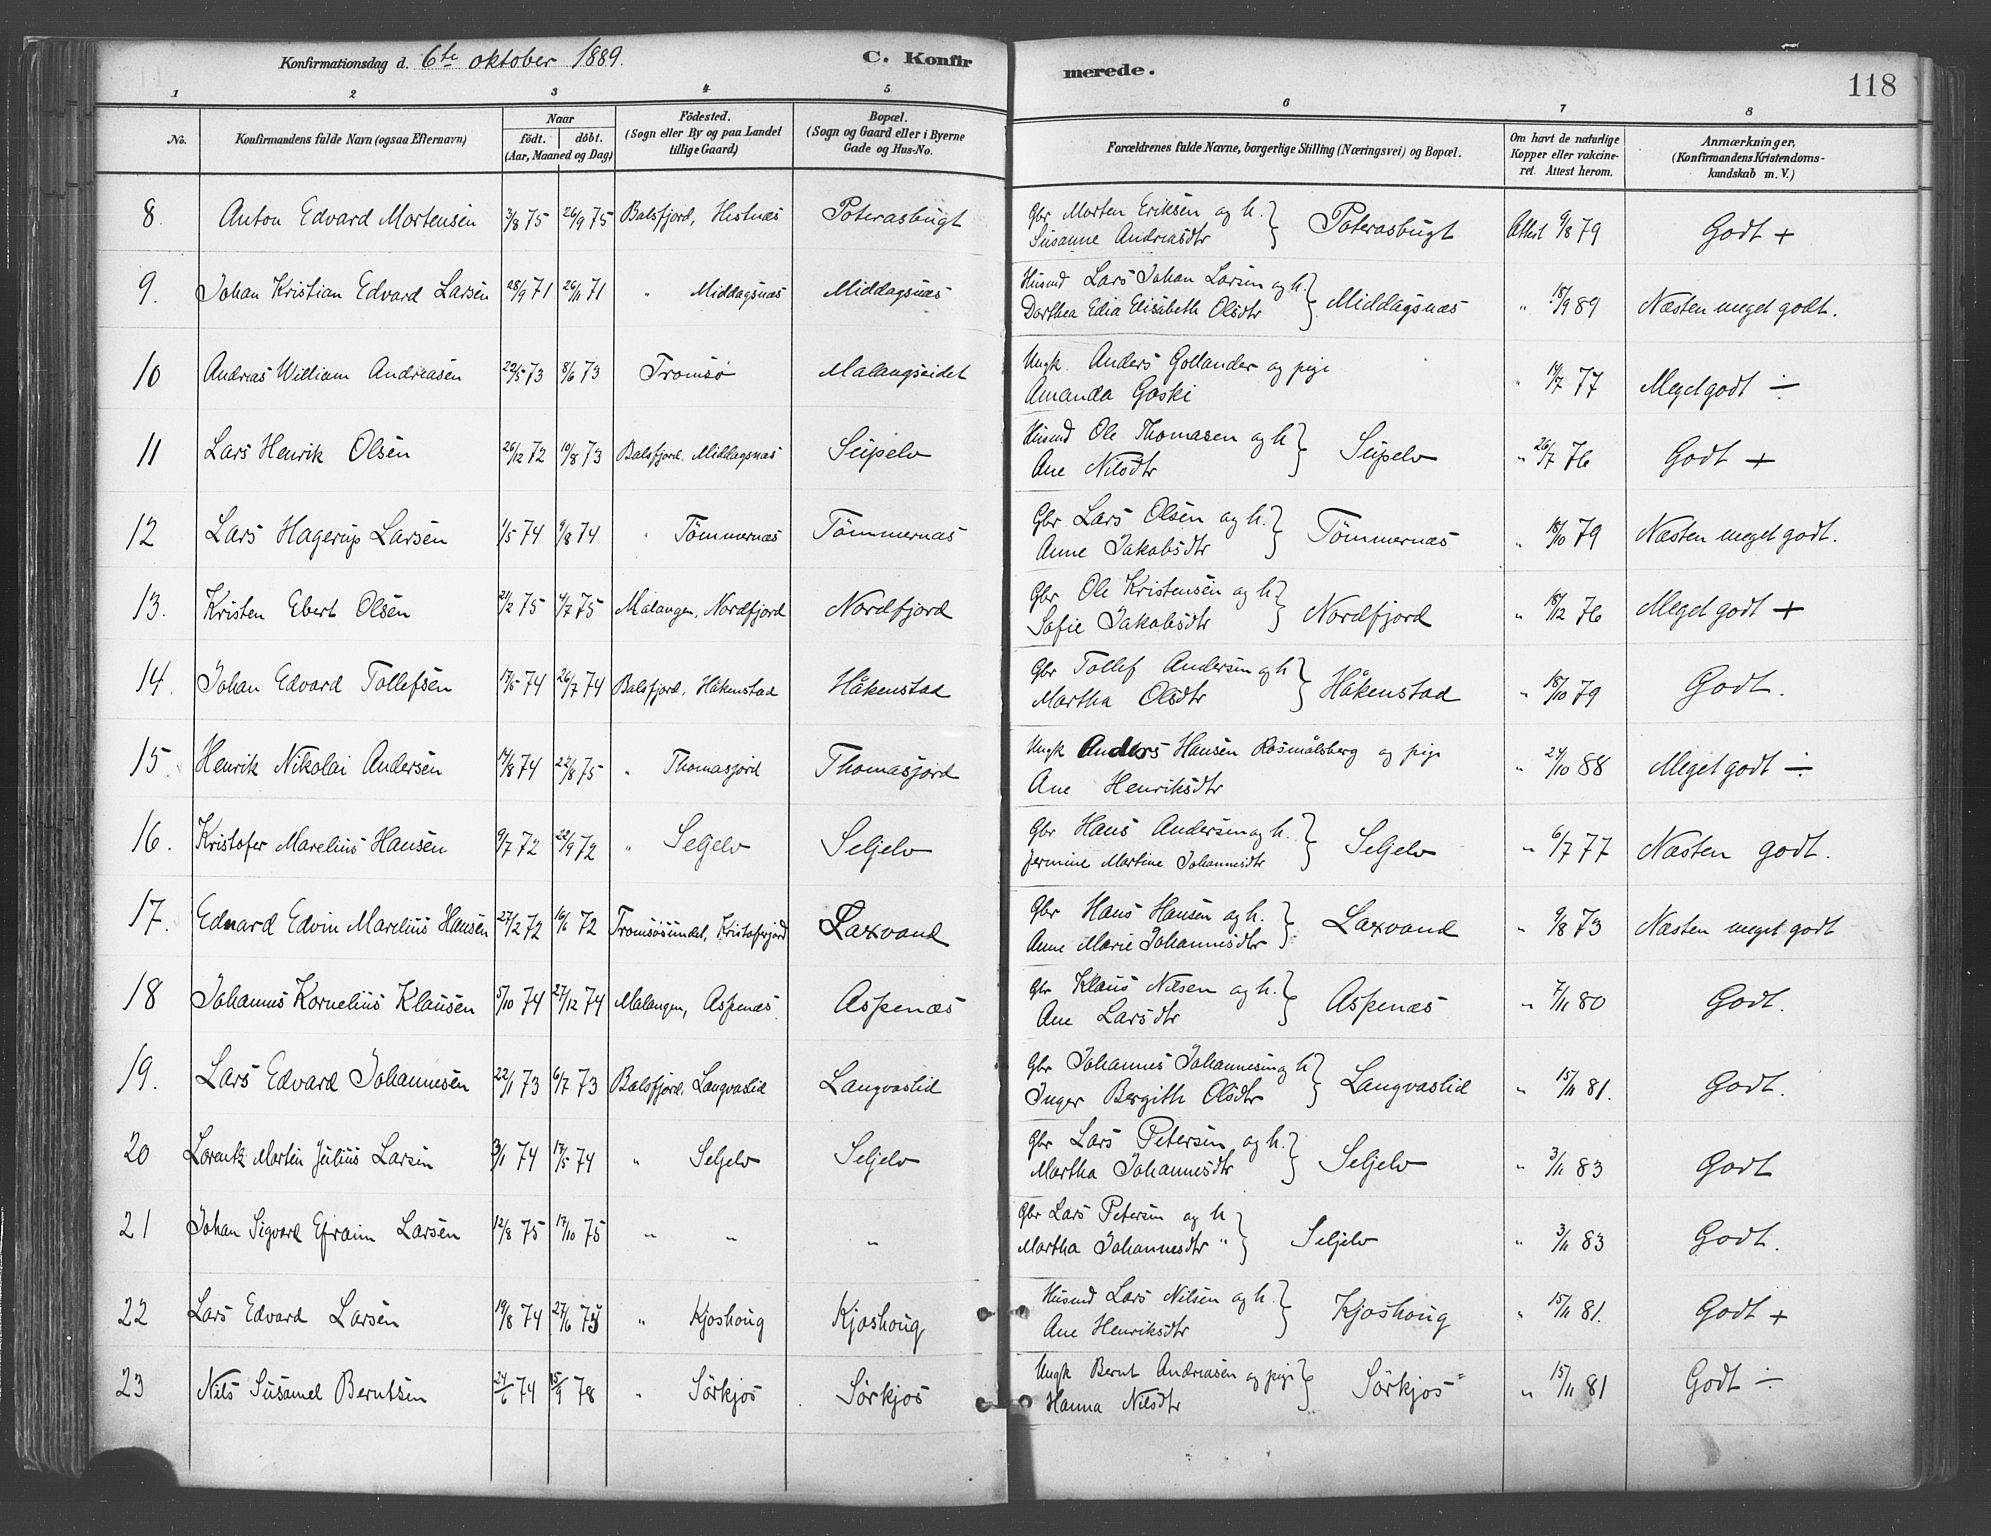 Konfirmationsdag d. 6te oktober 1889. C. Konfir merede. 118
1 2 3 4 5 6 7 8
No. Konfirmandens fulde Navn (ogsaa Efternavn) Naar født. døbt. (Aar, Maaned og Dag) Fødested. (Sogn eller By og paa Landet tillige Gaard) Bopæl. (Sogn og Gaard eller i Byerne Gade og Hus-No. Forældrenes fulde Navne, borgerlige Stilling (Næringsvei) og Bopæl. Om havt de naturlige Kopper eller vakcineret. Attest herom. Anmærkninger, (Konfirmandens Kristendomskundskab m. V.)
8. Anton Edvard Mortensen 3/8 75 26/9 75 Balsfjord, Hestnæs Poterasbugt Gbr Morten Eriksen og h. } Poterasbugt Attest 9/8 79 Godt +
Susanne Andreasdtr
9. Johan Kristian Edvard Larsen 28/9 71 26/11 71 " Middagsnæs Middagsnæs Husmd Lars Johan Larsen og h. } Middagsnæs " 18/9 89 Næsten meget godt.
Dorthea Edia Elisabeth Olsdtr
10 Andreas William Andreasen 22/5 73 8/6 73 Tromsø Malangseidet Ungk. Anders Gollander og pige " 19/7 77 Meget godt ÷
Amanda Goski
11 Lars Henrik Olsen 26/12 72 10/8 73 Balsfjord, Middagsnæs Süpelv Husmd Ole Thomasen og h } Süpelv " 26/7 76 Godt +
Ane Nilsdtr
12 Lars Hagerup Larsen 1/5 74 9/8 74 " Tömmernæs Tömmernæs Gbr Lars Olsen og h. } Tömmernæs " 18/10 79 Næsten meget godt.
Anne Jakobsdtr
13. Kristen Ebert Olsen 21/2 75 4/7 75 Malangen, Nordfjord Nordfjord Gbr Ole Kristensen og h } Nordfjord " 18/12 76 Meget godt +
Sofie Jakobsdtr
14. Johan Edvard Tollefsen 17/5 74 26/7 74 Balsfjord, Håkenstad Håkenstad Gbr Tollef Andersen og h } Håkenstad " 18/10 79 Godt.
Martha Olsdtr
15. Henrik Nikolai Andersen 17/8 74 22/8 75 " Thomasjord Thomasjord Ungk Anders Hansen Rosmålsberg og pige " 24/10 88 Meget godt ÷
Ane Henriksdtr
16. Kristofer Marelius Hansen 9/7 72 22/9 72 " Seljelv Seljelv Gbr Hans Andersen og h. } Seljelv " 6/7 77 Næsten godt.
Jermine Martine Johannesdtr
17. Edvard Edvin Marelius Hansen 27/2 72 16/6 72 Tromsøsundet, Kristoferjord Laxvand Gbr Hans Hansen og h. } Laxvand " 9/8 73 Næsten meget godt
Anne Marie Johannesdtr
18 Johannes Kornelius Klausen 5/10 74 27/12 74 Malangen, Aspenæs Aspenæs Gbr Klaus Nilsen og h. } Aspenæs " 7/11 80 Godt.
Ane Larsdtr
19. Lars Edvard Johannesen 22/1 73 6/7 73 Balsfjord, Langvaslid Langvaslid Gbr Johannes Johannesen og h } Langvaslid " 15/11 81. Godt.
Inger Bergith Olsdtr
20 Lorentz Martin Julius Larsen 3/1 74 17/5 74 " Seljelv Seljelv Gbr Lars Petersen og h. } Seljelv " 3/11 83 Godt
Martha Johannesdtr
21 Johan Sigvard Efraim Larsen 12/8 75 17/10 75 " " " Gbr Lars Petersen og h } Seljelv " 3/11 83 Godt.
Martha Johannesdtr "
22 Lars Edvard Larsen 19/8 74 27/6 75 " Kjoshoug Kjoshoug Husmd Lars Nilsen og h. } Kjoshoug " 15/11 81. Godt +
Ane Henriksdtr
23 Nils Susamel Berntsen 24/6 74 15/9 78 " Sörkjos Sörkjos Ungk Bernt Andreasen og pige } Sörkjos " 15/11 81 Godt ÷
Hanna Nilsdtr